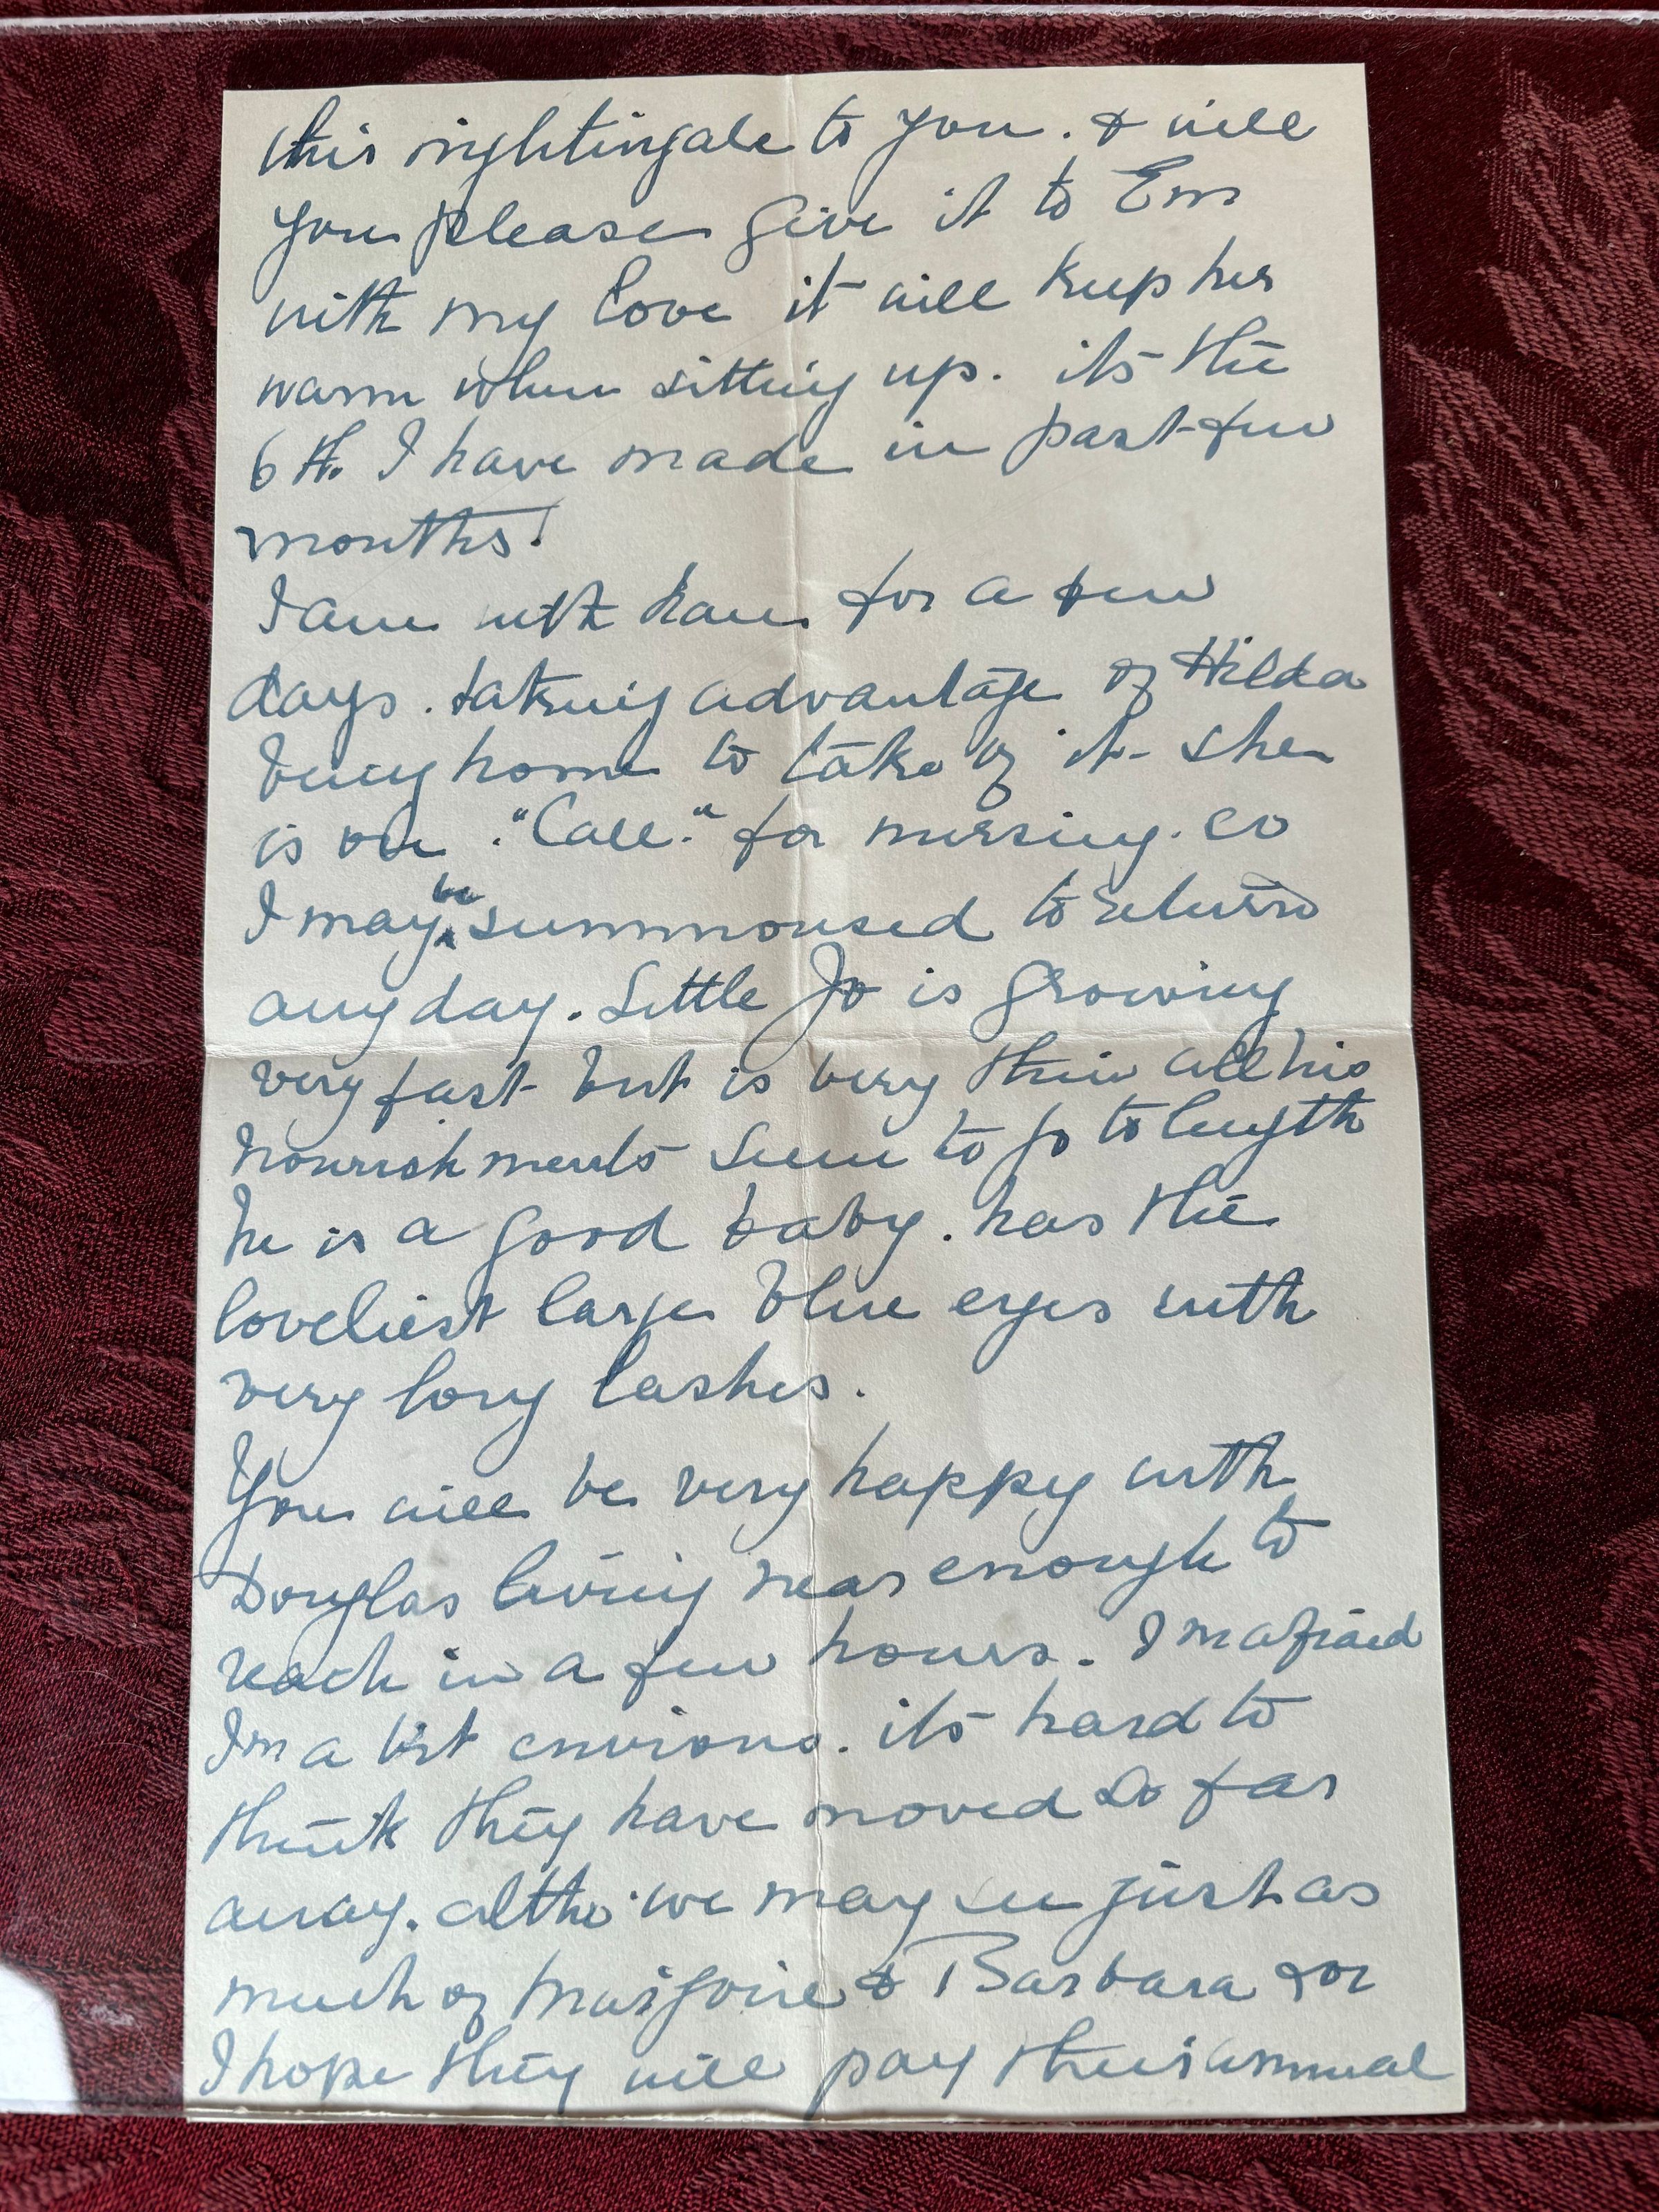 this nightingale to you. & will
you please give it to Em
with my love it will keep her
warm when sitting up. its the
6th. I have made in past few
months!
I am with for a few
days. taking advantage of Hilda
being home to take of it - she
is on "Call." for nursing. so
I may be summonsed to return
any day. Little Jo is growing
very fast but is very thin all his
nourishments seem to go to length
he is a good baby. has the
loveliest large blue eyes with
very long lashes.
You will be very happy with
Douglas living near enough to
reach in a few hours. I'm afraid
I'm a bit envious. its hard to
think they have moved so far
away. altho' we may see just as
much of & Barbara for
I hope they will pay their annual